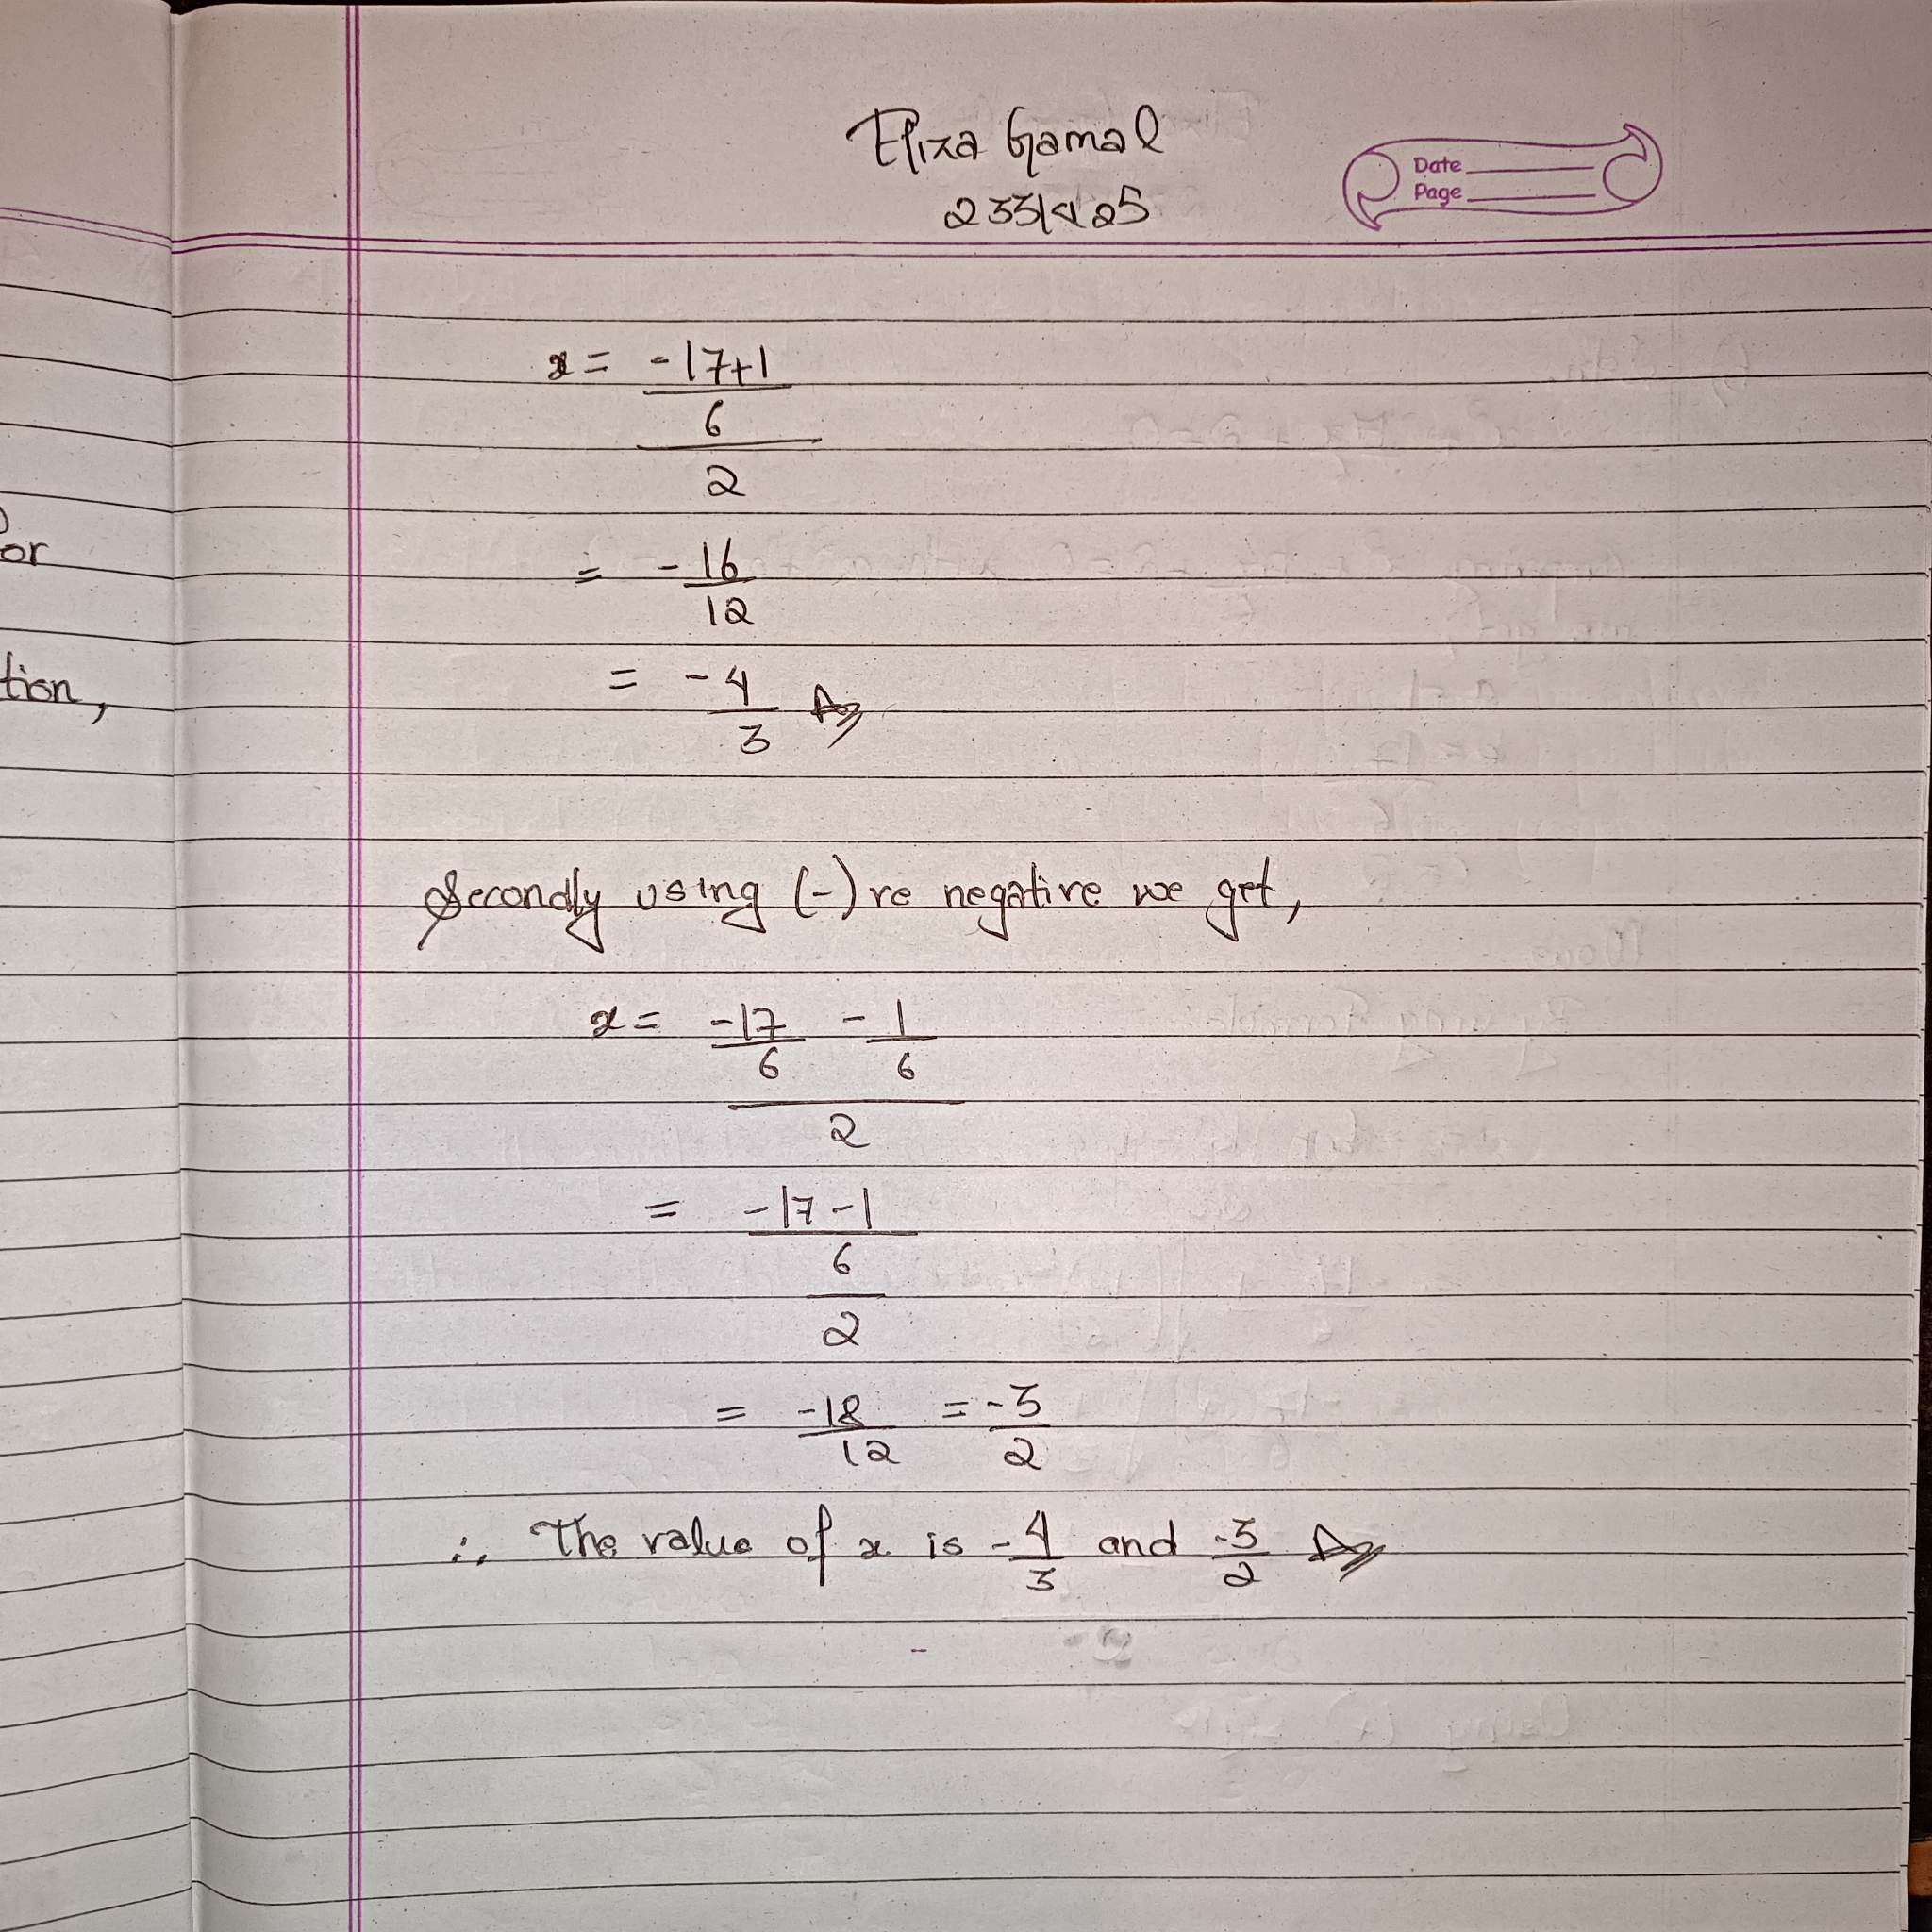 Eliza Gamal
2331425
Date
Page
or
tion,
x = -17+1
6
2
= -16
12
= -4
3 Ans
Secondly using (-)ve negative we get,
x = -17 - 1
6 6
2
= -17-1
6
2
= -18 = -3
12 2
∴ The value of x is -4/3 and -3/2 Ans